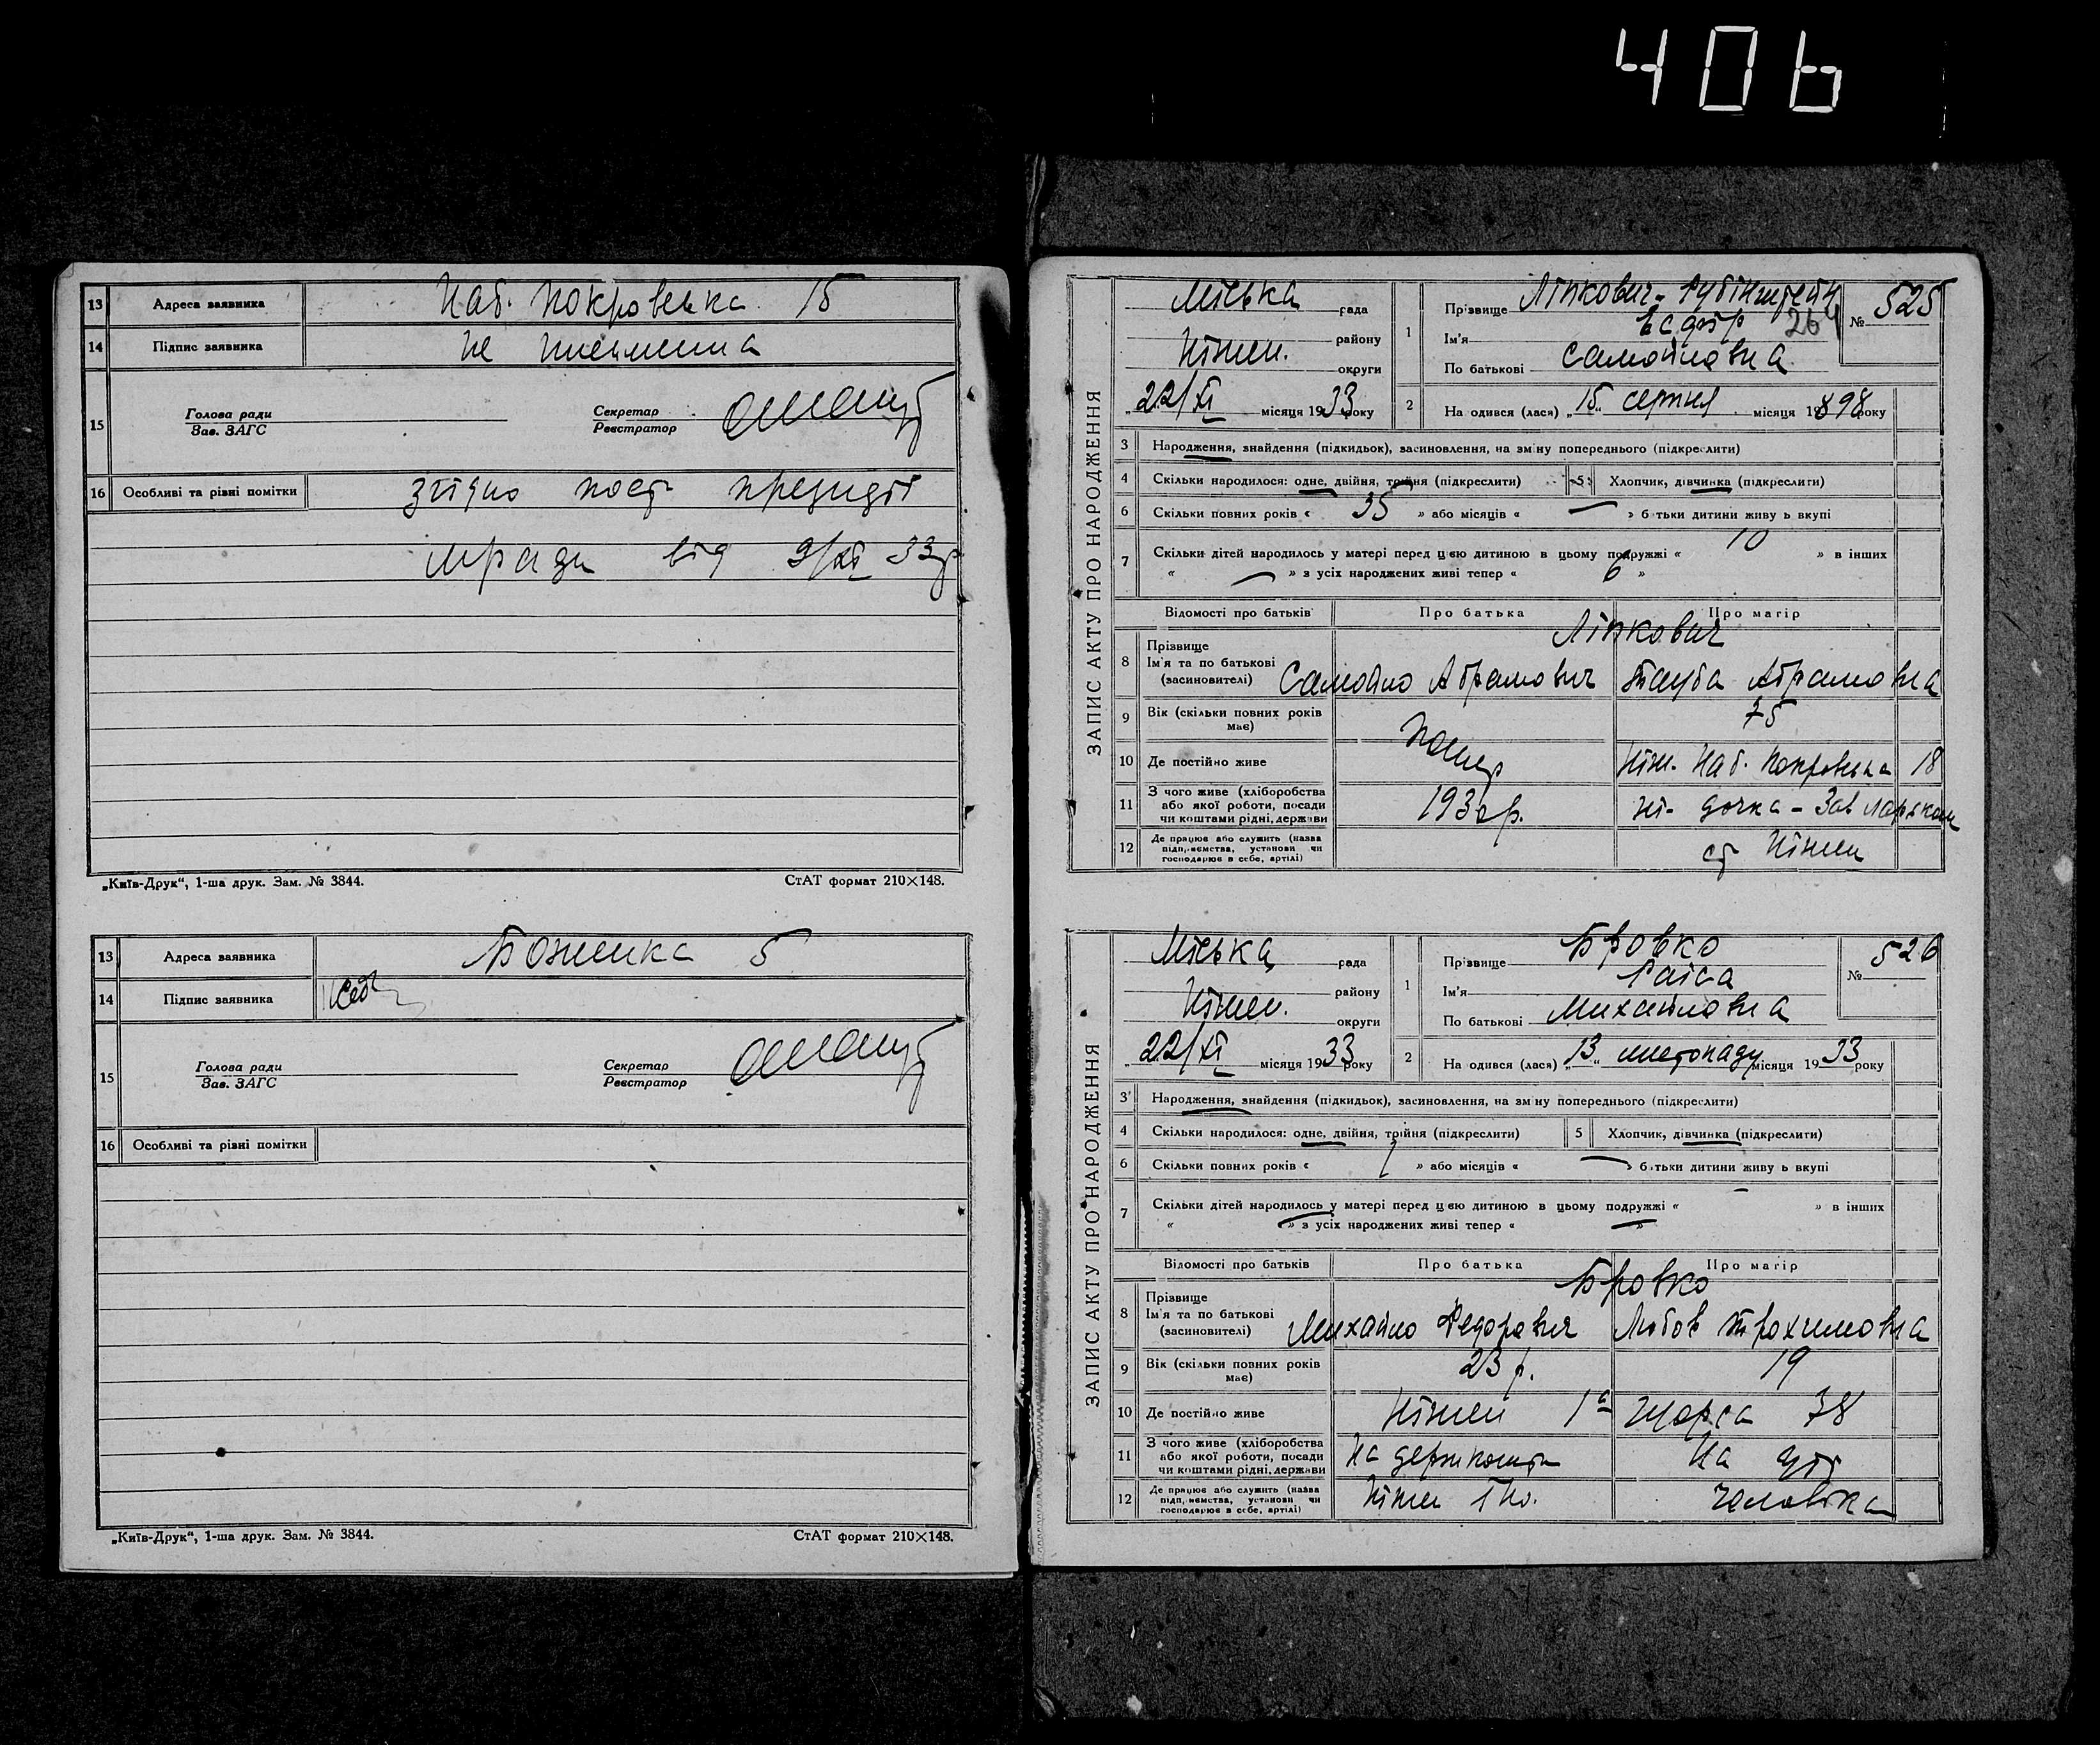 406
13 Адреса заявника Наб. Покровська 15
14 Підпис заявника не письменна
15 Голова ради Зав. ЗАГС Секретар Реєстратор
16 Особливі та різні помітки згідно пост президії
мради від 9/XI 33р
„Київ-Друк“, 1-ша друк. Зам. № 3844. СтАТ формат 210×148.
13 Адреса заявника Боженка 5
14 Підпис заявника
15 Голова ради Зав. ЗАГС Секретар Реєстратор
16 Особливі та різні помітки
„Київ-Друк“, 1-ша друк. Зам. № 3844. СтАТ формат 210×148.
ЗАПИС АКТУ ПРО НАРОДЖЕННЯ
Міська рада
району
Ніжен. округи
„22/XI місяця 1933 року
1 Прізвище Ліпкович-Рубінштейн
264
№ 525
Ім'я Есфір
По батькові Самойловна
2 На одився (лася) „15“ серпня місяця 1898 року
3 Народження, знайдення (підкидьок), засиновлення, на зміну попереднього (підкреслити)
4 Скільки народилося: одне, двійня, трійня (підкреслити) 5 Хлопчик, дівчинка (підкреслити)
6 Скільки повних років « 35 » або місяців « — » батьки дитини живу ь вкупі
7 Скільки дітей народилось у матері перед цією дитиною в цьому подружжі « 10 » в інших
« — » з усіх народжених живі тепер « 6 »
Відомості про батьків Про батька Про матір
Ліпкович
8 Прізвище Ім'я та по батькові (засиновителі) Самойло Абрамович Тауба Абрамовна
9 Вік (скільки повних років має) 75
10 Де постійно живе Помер Ніж. Наб. Покровська 18
11 З чого живе (хліборобства або якої роботи, посади чи коштами рідні, держави 1930р. дочка - Зав
12 Де працює або служить (назва підприємства, установи чи господарює в себе, артілі) ст Ніжен
ЗАПИС АКТУ ПРО НАРОДЖЕННЯ
Міська рада
Ніжен. району
округи
„22/XI місяця 1933 року
1 Прізвище Бровко
№ 526
Ім'я Раїса
По батькові Михайловна
2 На одився (лася) „13“ листопаду місяця 1933 року
3 Народження, знайдення (підкидьок), засиновлення, на зміну попереднього (підкреслити)
4 Скільки народилося: одне, двійня, трійня (підкреслити) 5 Хлопчик, дівчинка (підкреслити)
6 Скільки повних років « 1 » або місяців « — » батьки дитини живу ь вкупі
7 Скільки дітей народилось у матері перед цією дитиною в цьому подружжі « — » в інших
« — » з усіх народжених живі тепер « — »
Відомості про батьків Про батька Про матір
Бровко
8 Прізвище Ім'я та по батькові (засиновителі) Михайло Федорович Любов Трохимовна
9 Вік (скільки повних років має) 23 р. 19
10 Де постійно живе Ніжен 1а Щорса 38
11 З чого живе (хліборобства або якої роботи, посади чи коштами рідні, держави На держкошти На утр
12 Де працює або служить (назва підприємства, установи чи господарює в себе, артілі) Ніжен чоловіка